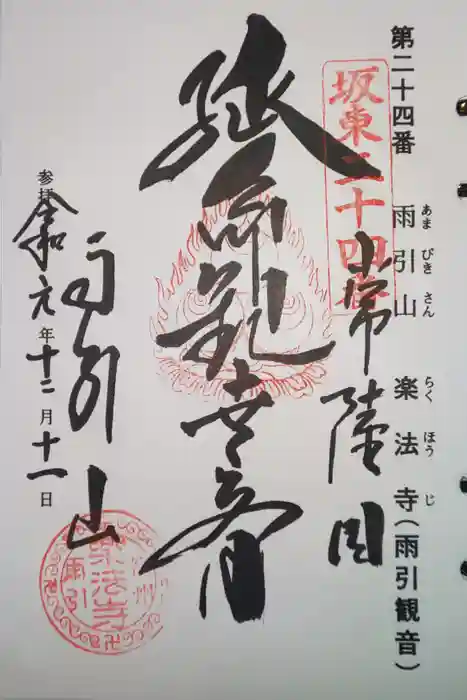 第二十四番 雨引山 楽法寺(雨引観音)
あま びき さん らく ほう じ
坂東二十四番
常陸国
延命観世音
雨引山
参拝
令和元年十二月十一日
雨引
楽法寺